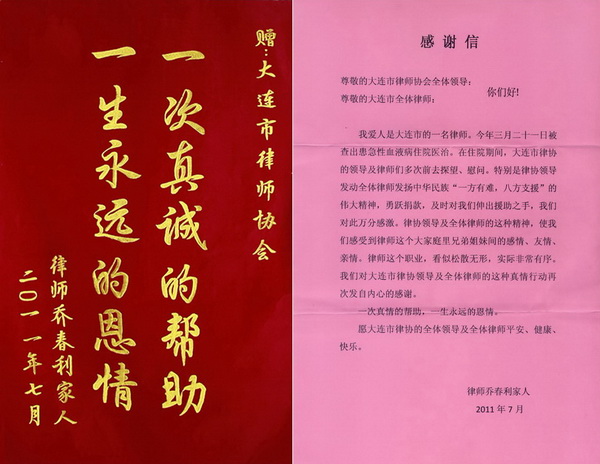 赠:大连市律师协会
一次真诚的帮助
一生永远的恩情
律师乔春利家人
二〇一一年七月
感谢信
尊敬的大连市律师协会全体领导:
尊敬的大连市全体律师:
你们好!
我爱人是大连市的一名律师。今年三月二十一日被
查出患急性血液病住院医治。在住院期间,大连市律协
的领导及律师们多次前去探望、慰问。特别是律协领导
发动全体律师发扬中华民族“一方有难,八方支援”的
伟大精神,勇跃捐款,及时对我们伸出援助之手,我们
对此万分感激。律协领导及全体律师的这种精神,使我
们感受到律师这个大家庭里兄弟姐妹间的感情、友情、
亲情。律师这个职业,看似松散无形,实际非常有序。
我们对大连市律协领导及全体律师的这种真情行动再
次发自内心的感谢。
一次真情的帮助,一生永远的恩情。
愿大连市律协的全体领导及全体律师平安、健康、
快乐。
律师乔春利家人
2011 年 7 月